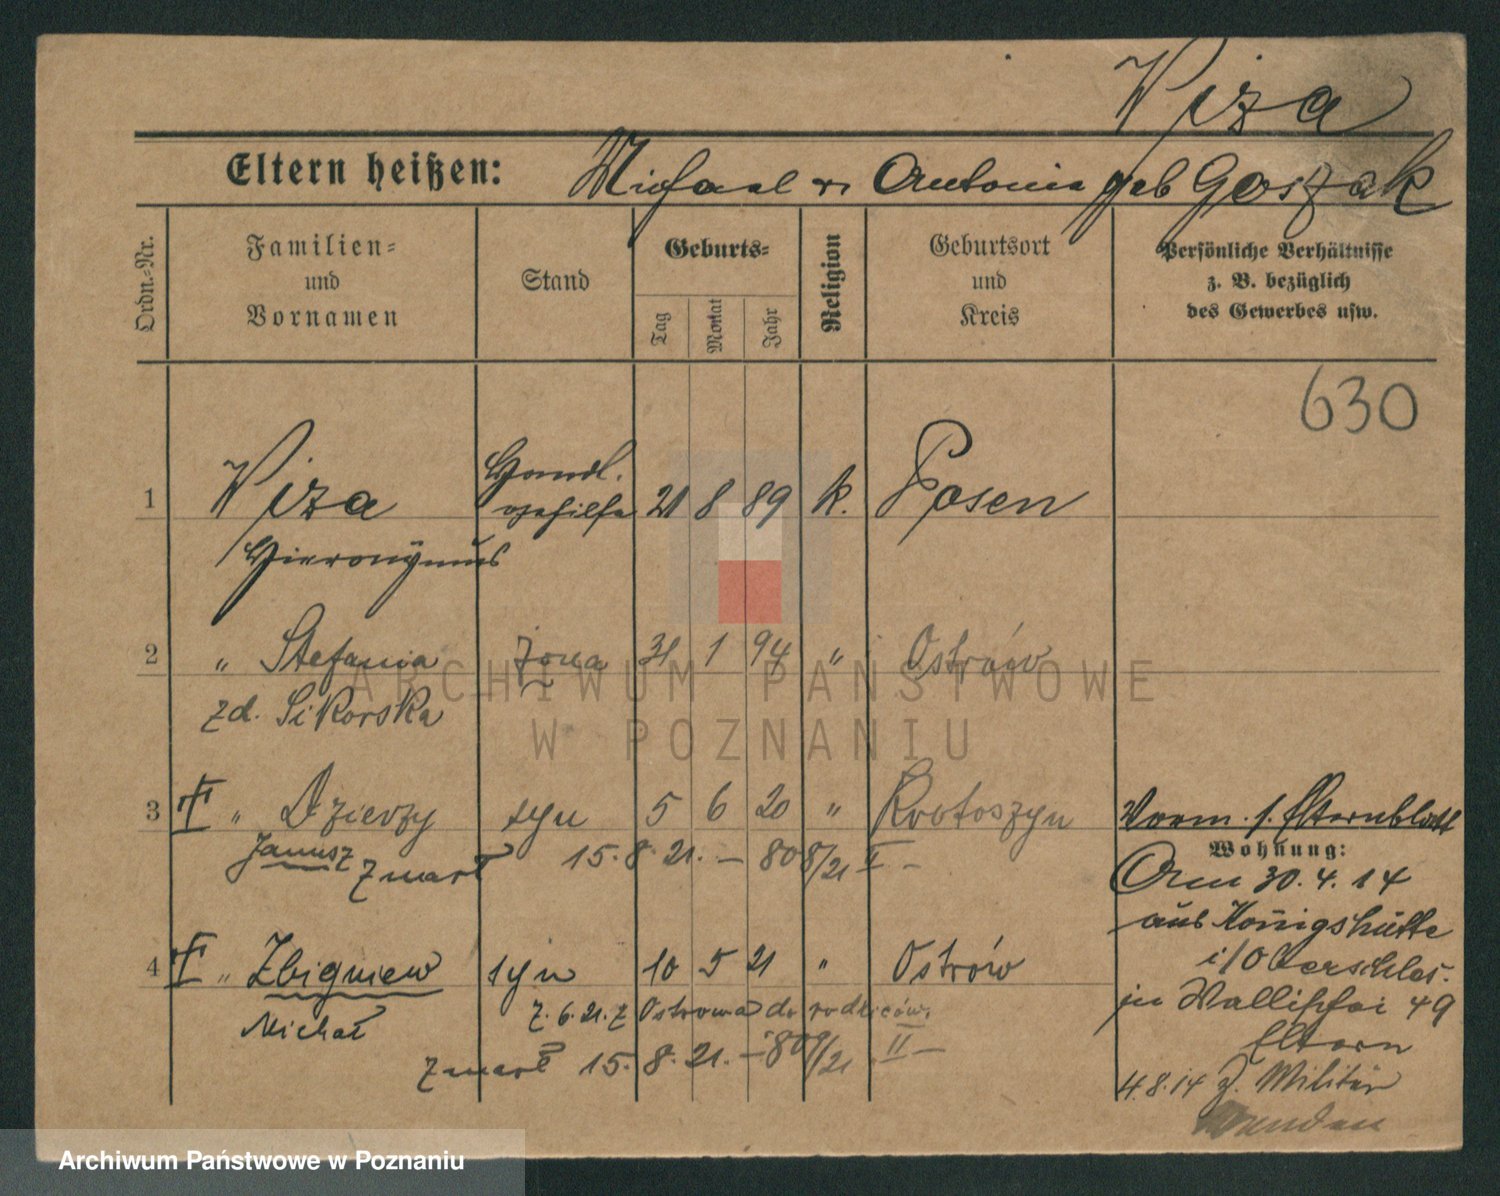 Viza
Eltern heißen: Michael u. Antonie geb Goszak
Ordn.-Nr.
Familien-
und
Vornamen
Stand
Geburts-
Tag
Monat
Jahr
Religion
Geburtsort
und
Kreis
Persönliche Verhältnisse
z. B. bezüglich
des Gewerbes usw.
630
1 Viza Handl. gehilfe 21 8 89 k. Posen
Hieronÿmus
2 " Stefania żona 31 1 94 " Ostrów
zd. Sikorska
3 " Dzierży syn 5 6 20 " Krotoszyn
Janusz zmarł 15. 8. 21. – 808/21 I –
4 " Zbigniew syn 10 5 21 " Ostrów
Michał
7. 6. 21. z Ostrowa do rodziców.
zmarł 15. 8. 21. – 809/21 II –
Vorm. s. Elternblatt
Wohnung:
Am 30. 4. 14
aus Königshütte
i/Oberschles.
in Wallischei 49
Eltern
4. 8. 14 z. Militär
ARCHIWUM PAŃSTWOWE
W POZNANIU
Archiwum Państwowe w Poznaniu